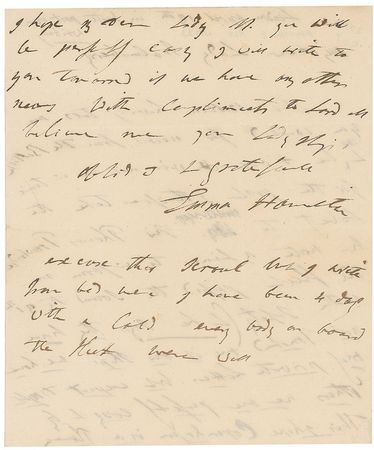 I hope my Dear Lady M. you will
be perfectly easy I will write to
you tomorrow if we have any other
news With Compliments to Lord M
believe me your Ladyships
obligd & grateful
Emma Hamilton
excuse this Scrawl but I write
from bed were I have been 4 days
with a Cold every body on board
the Fleet were well